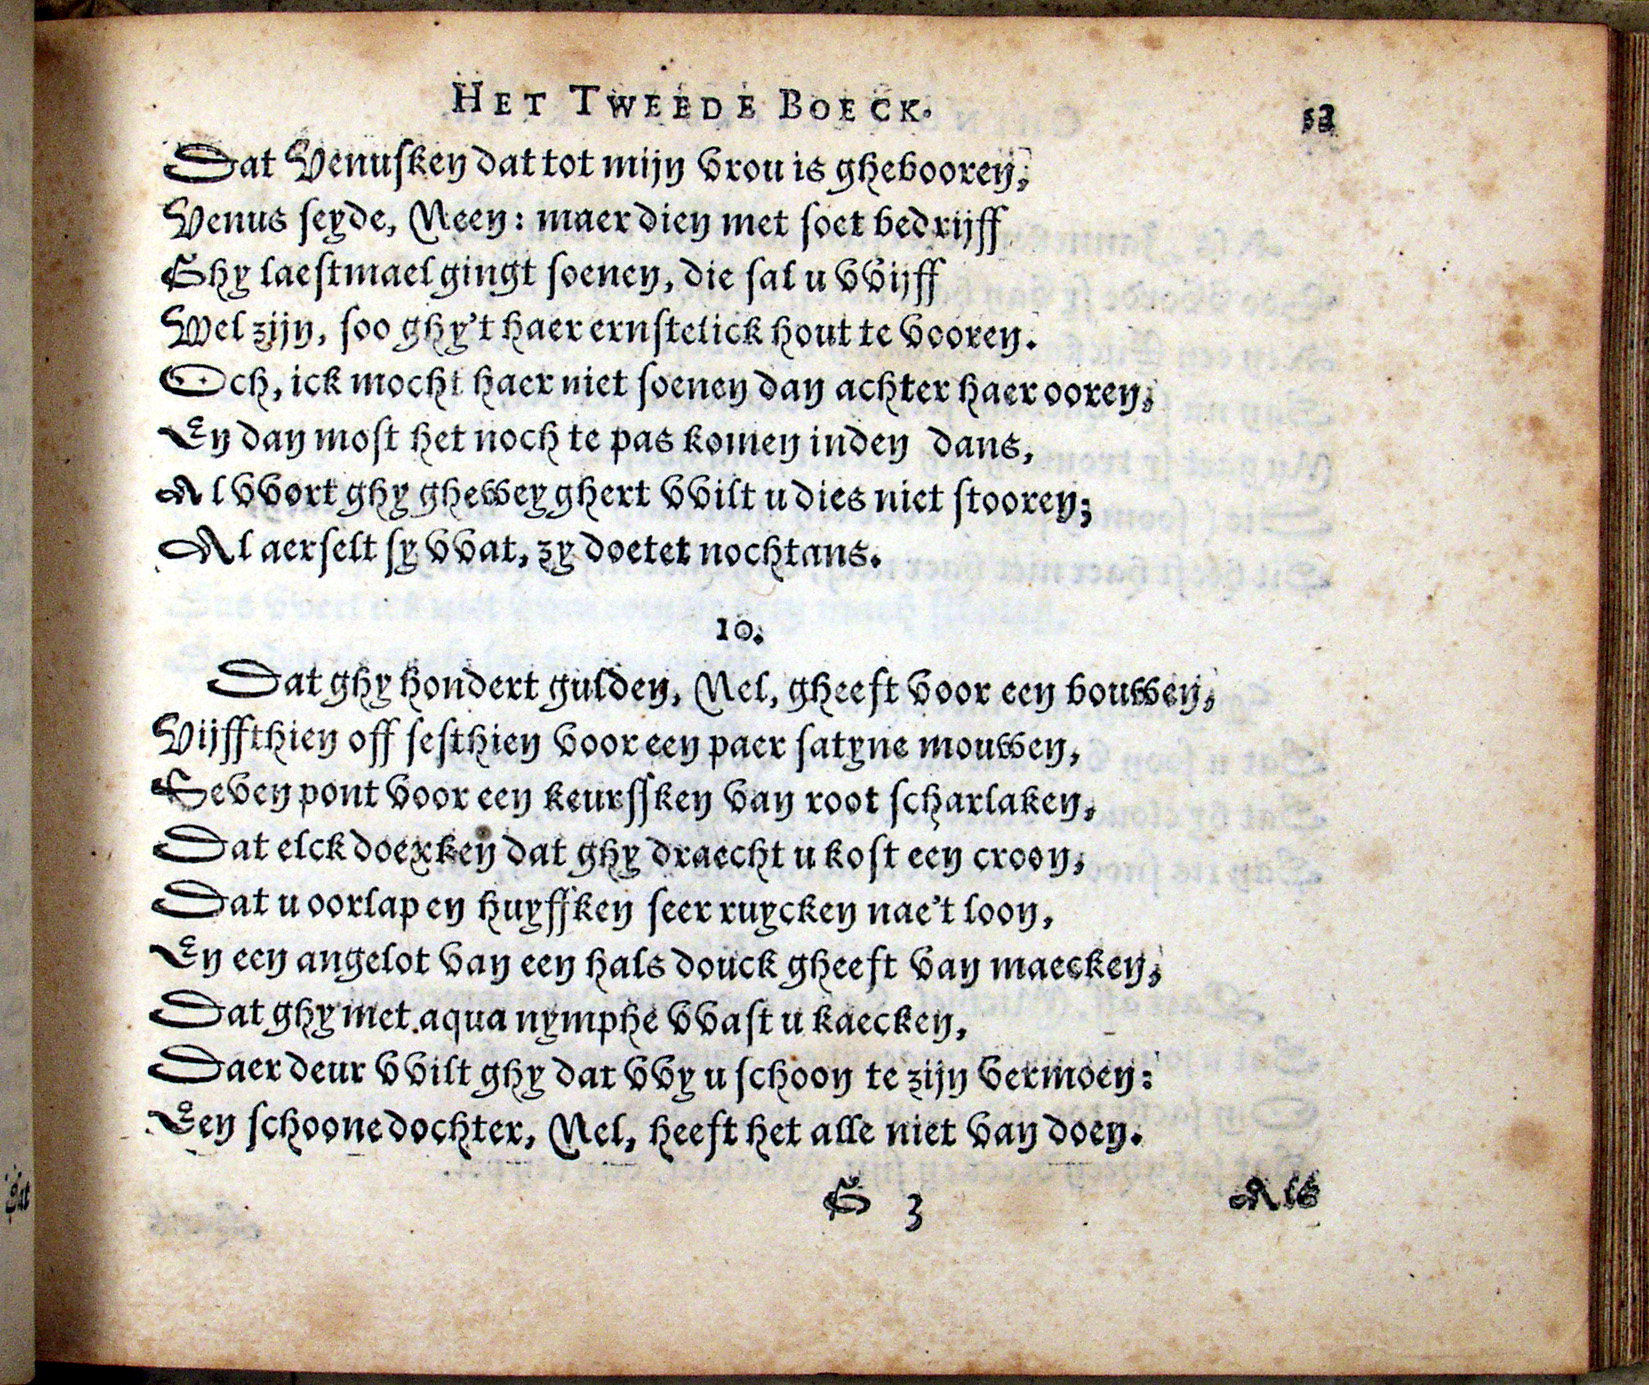 HET TWEEDE BOECK. 52
Dat Venusken dat tot mijn vrou is ghebooren,
Venus seyde, Neen: maer dien met soet bedrijff
Ghy laestmael gingt soenen, die sal u vvijff
Wel zijn, soo ghy't haer ernstelick hout te vooren.
Och, ick mocht haer niet soenen dan achter haer ooren,
En dan most het noch te pas komen inden dans,
Al vvort ghy gheweyghert vvilt u dies niet stooren;
Al aerselt sy vvat, zy doetet nochtans.
10.
Dat ghy hondert gulden, Nel, gheeft voor een bouwen,
Vijffthien off sesthien voor een paer satyne mouwen,
Seven pont voor een keurssken van root scharlaken,
Dat elck doexken dat ghy draecht u kost een croon,
Dat u oorlap en huyffken seer ruycken nae't loon,
En een angelot van een hals douck gheeft van maecken,
Dat ghy met aqua nymphe vvast u kaecken,
Daer deur vvilt ghy dat vvy u schoon te zijn vermoen:
Een schoone dochter, Nel, heeft het alle niet van doen.
G 3 Als
Dat